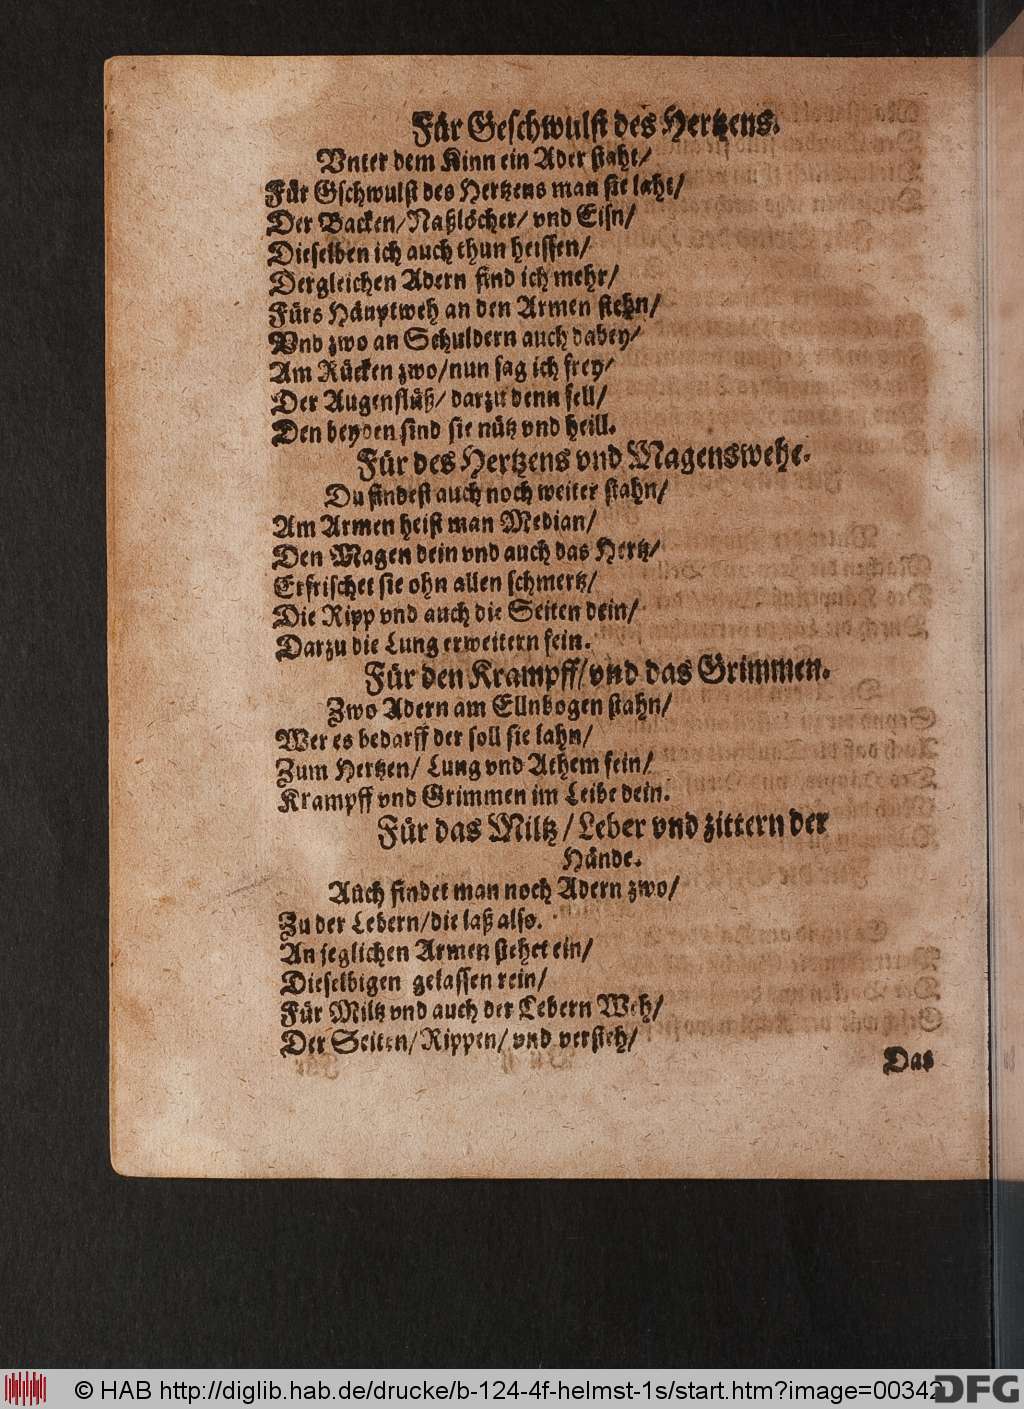 Für Geschwulst des Hertzens.
Vnter dem Kinn ein Ader staht/
Für Gschwulst des Hertzens man sie laht/
Der Backen/ Naßlöcher/ vnd Eisn/
Dieselben ich auch thun heissen/
Dergleichen Adern find ich mehr/
Fürs Häuptweh an den Armen stehn/
Vnd zwo an Schuldern auch dabey/
Am Rücken zwo/ nun sag ich frey/
Der Augenflüß/ darzu denn fell/
Den beyden sind sie nütz vnd heill.
Für des Hertzens vnd Magenswehe.
Du findest auch noch weiter stahn/
Am Armen heist man Median/
Den Magen dein vnd auch das Hertz/
Erfrischet sie ohn allen schmertz/
Die Ripp vnd auch die Seiten dein/
Darzu die Lung erweitern fein.
Für den Krampff/ vnd das Grimmen.
Zwo Adern am Ellnbogen stahn/
Wer es bedarff der soll sie lahn/
Zum Hertzen/ Lung vnd Athem fein/
Krampff vnd Grimmen im Leibe dein.
Für das Miltz/ Leber vnd zittern der
Hände.
Auch findet man noch Adern zwo/
Zu der Lebern/ die laß also.
An jeglichen Armen stehet ein/
Dieselbigen gelassen rein/
Für Miltz vnd auch der Lebern Weh/
Der Seiten/ Rippen/ vnd versteh/
Das
© HAB http://diglib.hab.de/drucke/b-124-4f-helmst-1s/start.htm?image=00342
DFG